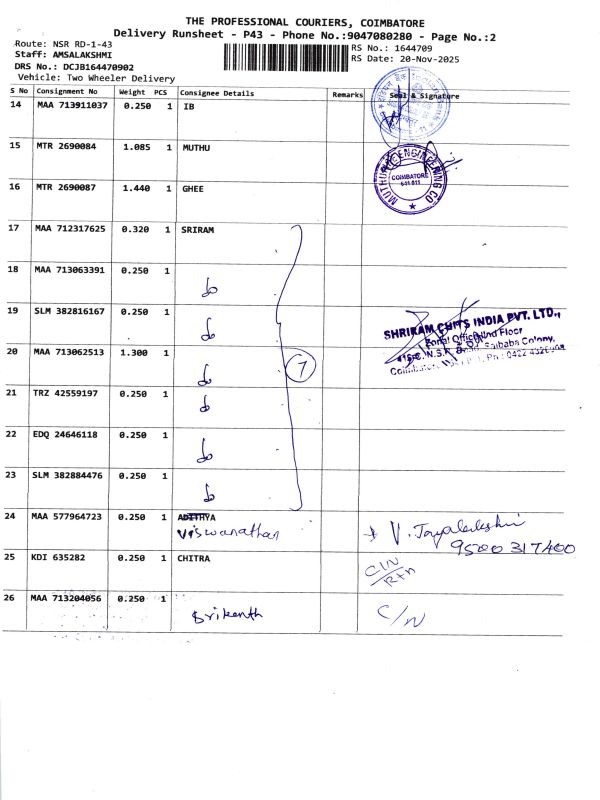 THE PROFESSIONAL COURIERS, COIMBATORE
Delivery Runsheet - P43 - Phone No.:9047080280 - Page No.:2
Route: NSR RD-1-43 RS No.: 1644709
Staff: AMSALAKSHMI RS Date: 20-Nov-2025
DRS No.: DCJB164470902
Vehicle: Two Wheeler Delivery
S No Consignment No Weight PCS Consignee Details Remarks Seal & Signature
14 MAA 713911037 0.250 1 IB
15 MTR 2690084 1.085 1 MUTHU
MUTHURJE ENGINEERING CO
COIMBATORE
641 011
16 MTR 2690087 1.440 1 GHEE
17 MAA 712317625 0.320 1 SRIRAM
18 MAA 713063391 0.250 1
do
19 SLM 382816167 0.250 1
do
SHRIRAM CHITS INDIA PVT. LTD.,
Zonal Office IInd Floor
Saibaba Colony,
20 MAA 713062513 1.300 1
do
7
21 TRZ 42559197 0.250 1
do
22 EDQ 24646118 0.250 1
do
23 SLM 382884476 0.250 1
do
24 MAA 577964723 0.250 1 ADITHYA
Viswanathan
9500317400
25 KDI 635282 0.250 1 CHITRA
C/N
Rtn
26 MAA 713204056 0.250 1
Srikanth C/N